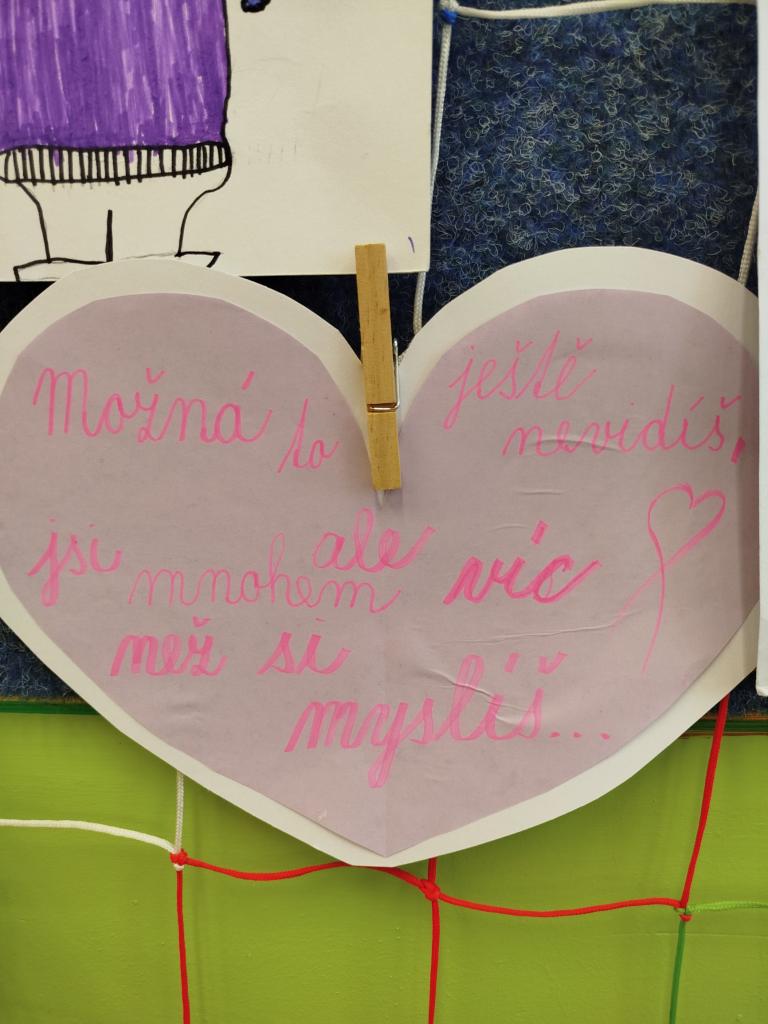 Možná to ještě
nevidíš,
jsi mnohem ale víc
než si
myslíš...